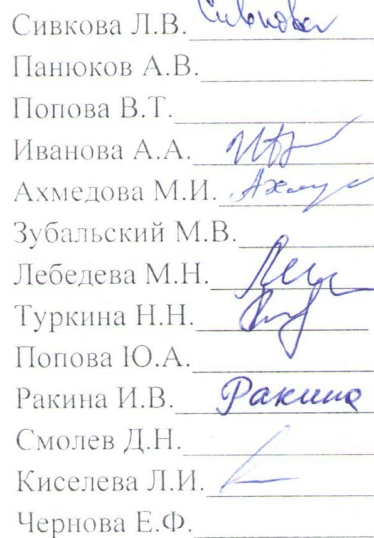 Сивкова Л.В. Сивкова
Панюков А.В.
Попова В.Т.
Иванова А.А.
Ахмедова М.И.
Зубальский М.В.
Лебедева М.Н.
Туркина Н.Н.
Попова Ю.А.
Ракина И.В. Ракина
Смолев Д.Н.
Киселева Л.И.
Чернова Е.Ф.